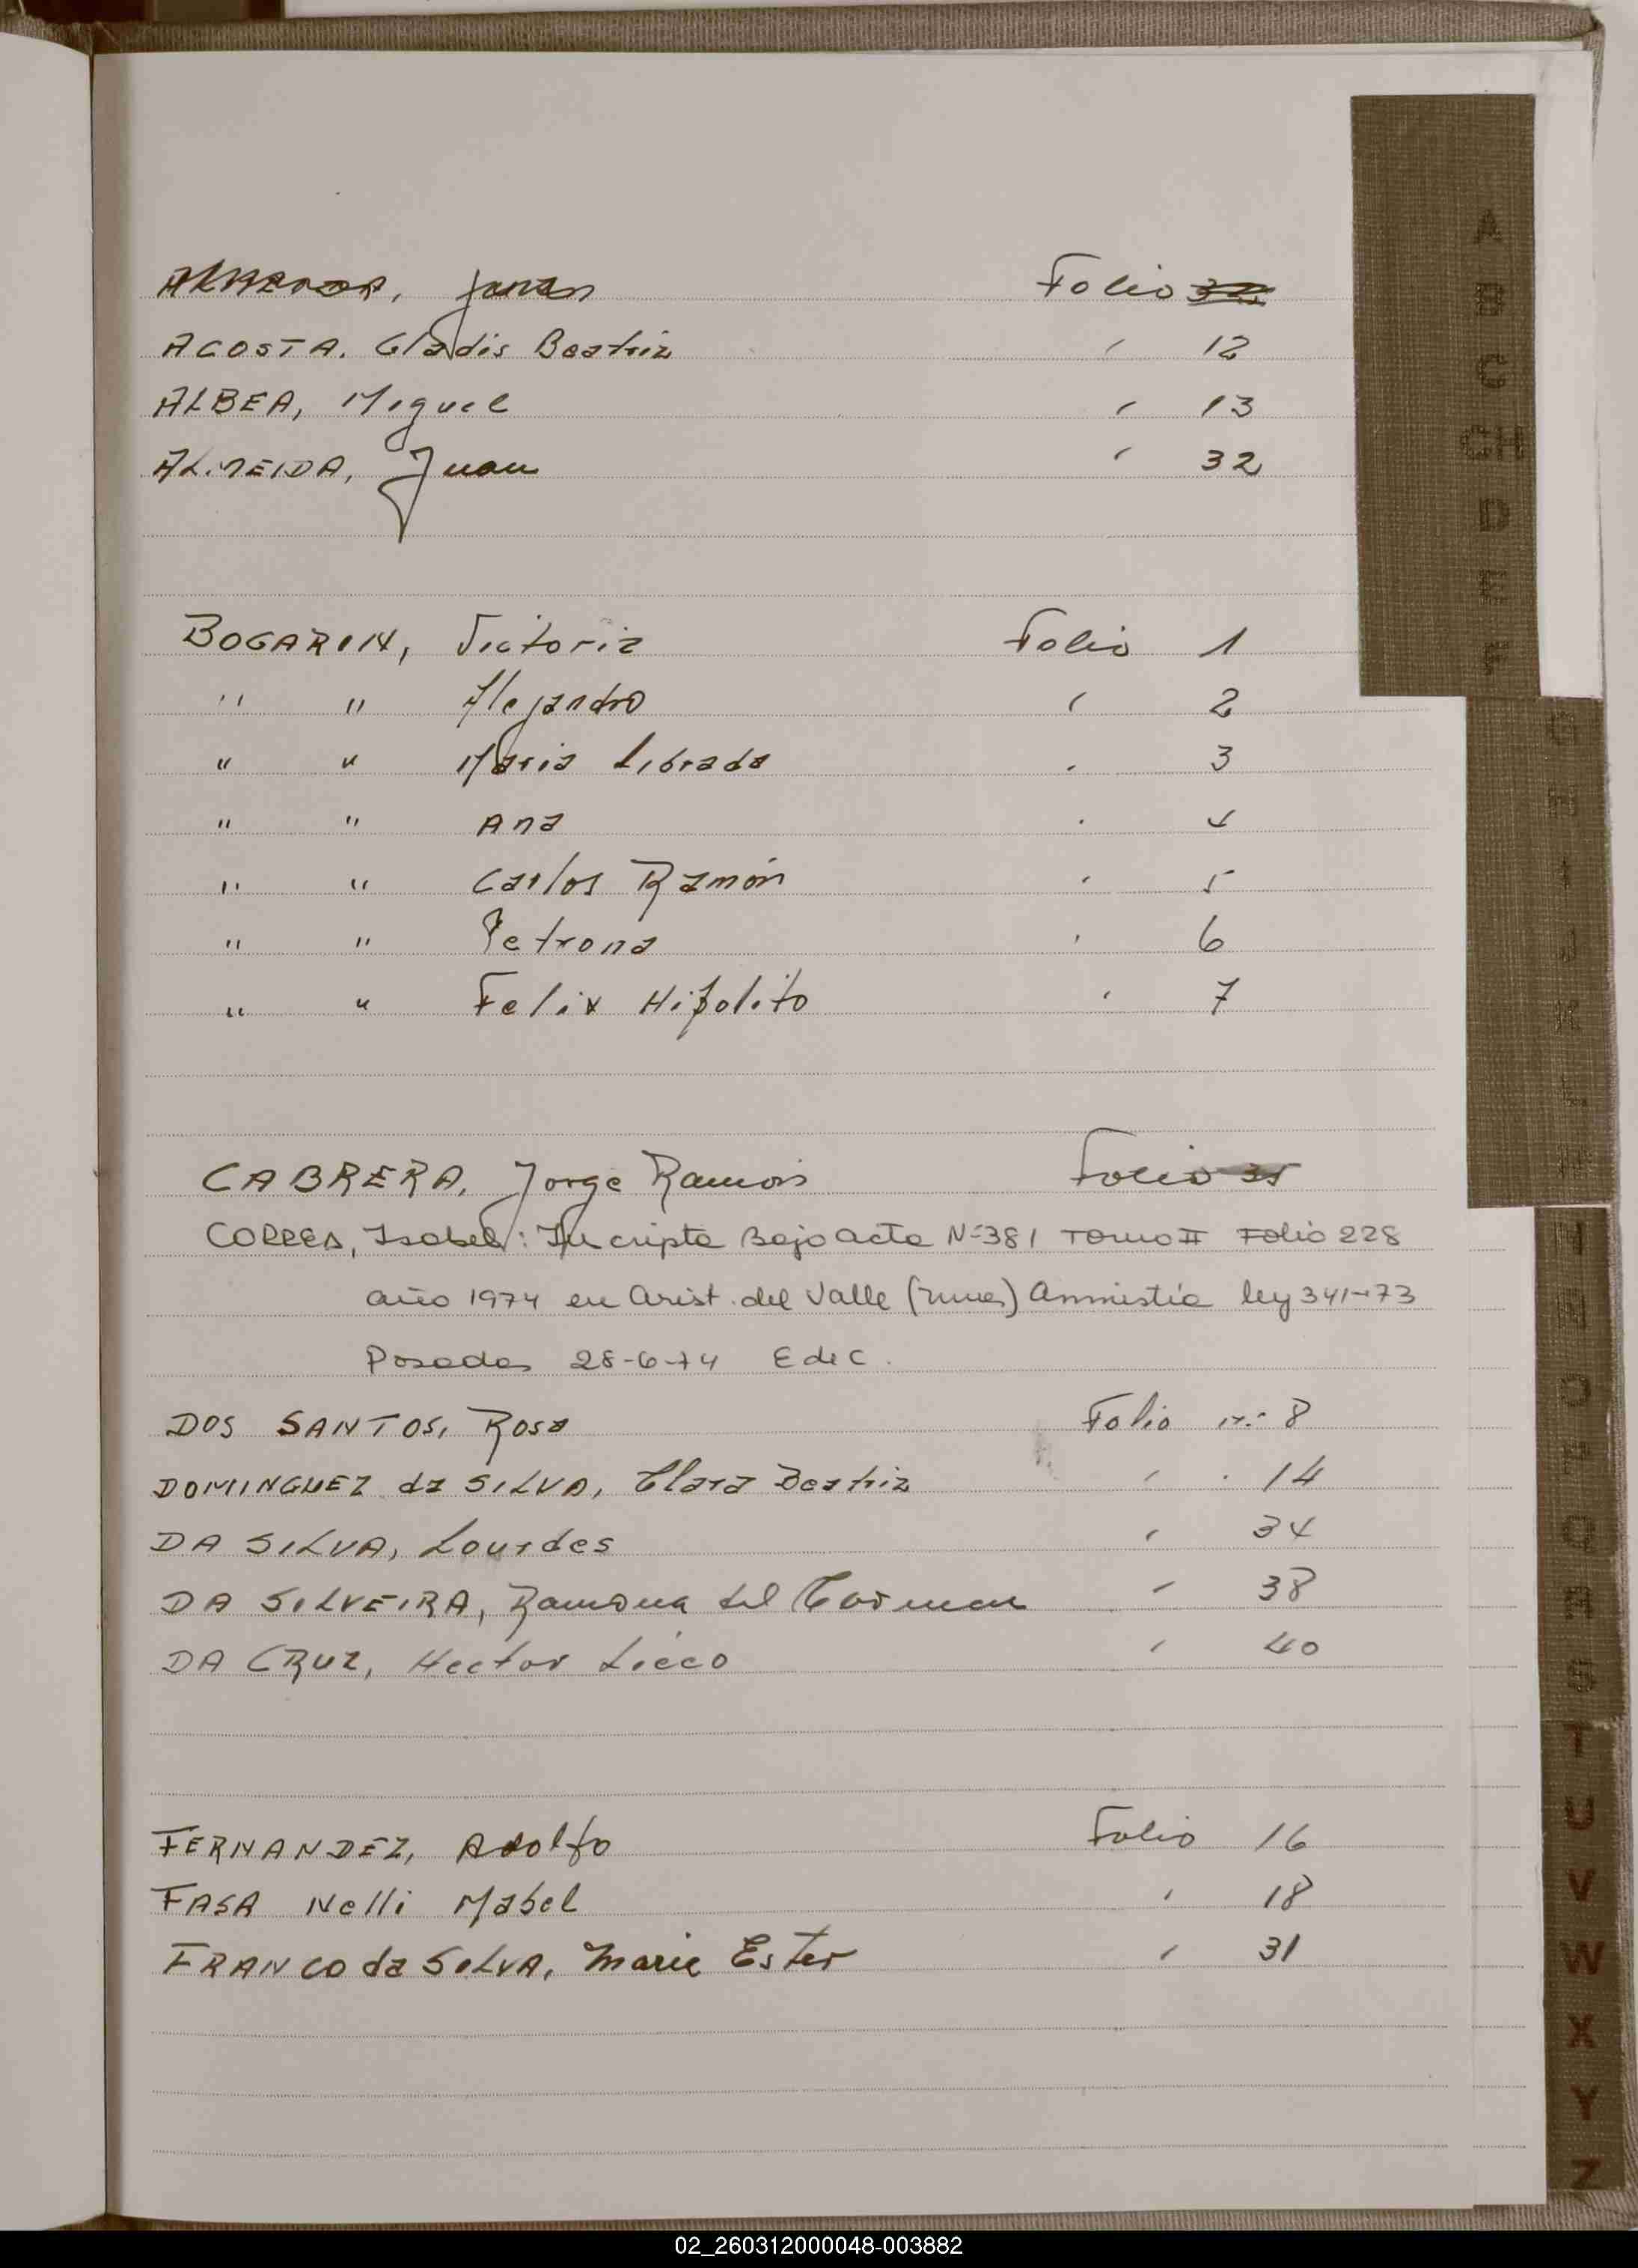 Folio
ACOSTA. Gladis Beatriz " 12
ALBEA, Miguel " 13
ALMEIDA, Juan " 32
BOGARIN, Victoria Folio 1
" " Alejandro " 2
" " Maria Librada " 3
" " Ana " 4
" " Carlos Ramón " 5
" " Petrona " 6
" " Felix Hipolito " 7
CABRERA, Jorge Ramón Folio
CORREA, Isabel: Inscripta Bajo acta Nº 381 Tomo II Folio 228
año 1974 en Arist. del Valle (mnes) Amnistía ley 341-73
Posadas 28-6-74 E de C.
DOS SANTOS, Rosa Folio nº 8
DOMINGUEZ da SILVA, Clara Beatriz " " 14
DA SILVA, Lourdes " 34
DA SILVEIRA, Ramona del Carmen " 38
DA CRUZ, Hector " 40
FERNANDEZ, Adolfo Folio 16
FASA Nelli Mabel " 18
FRANCO da SILVA, Maria Ester " 31
A
B
C
CH
D
E
F
G
H
I
J
K
L
M
N
Ñ
O
P
Q
R
S
T
U
V
W
X
Y
Z
02_260312000048-003882